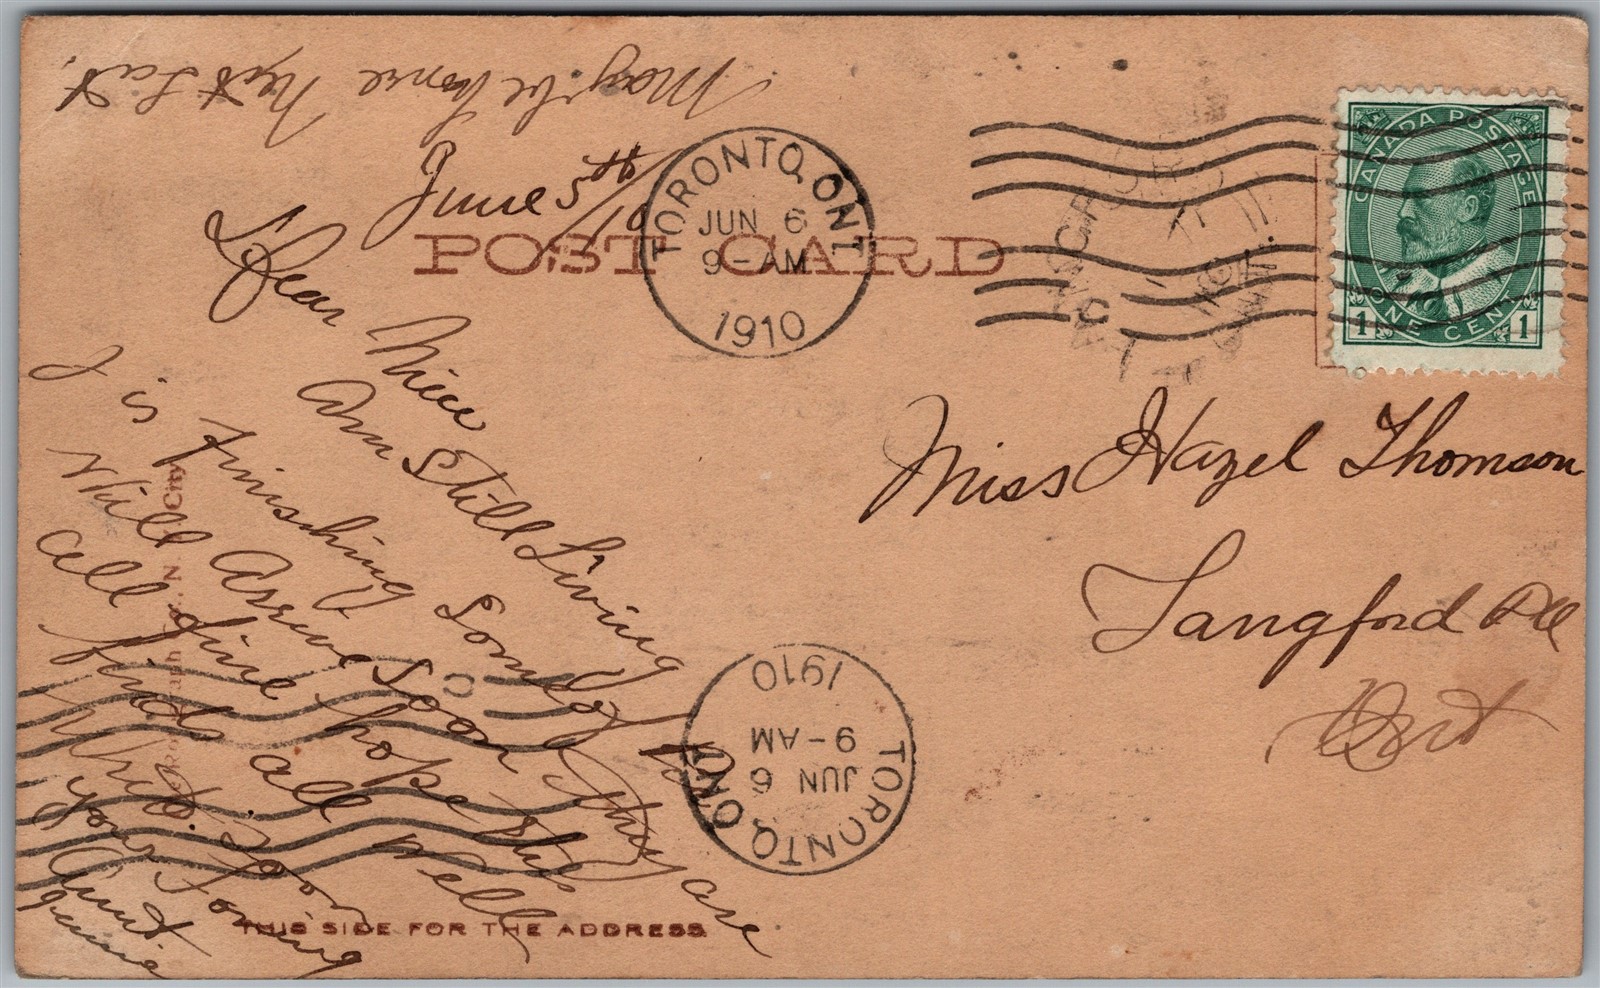 May be home Next Sat.
June 5th/10
POST CARD
TORONTO, ONT
JUN 6
9-AM
1910
CANADA POSTAGE
ONE CENT
1 1
Dear Niece
Am Still Living
I is finishing Some of
will Arrive Soon They are
all fine hope this
find all well
Write Soon
your Loving
Aunt
Miss Hazel Thomson
Langford
Ont
TORONTO, ONT
JUN 6
9-AM
1910
N. City
THIS SIDE FOR THE ADDRESS